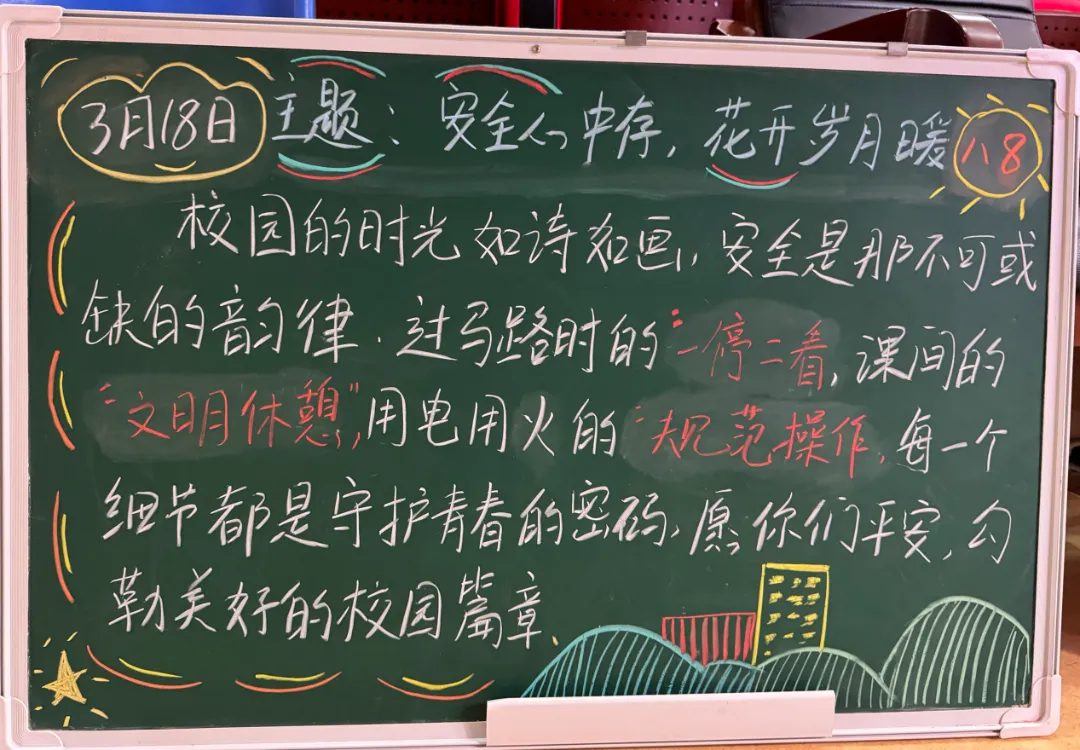 3月18日 主题：安全心中存，花开岁月暖 八8
校园的时光如诗如画，安全是那不可或
缺的韵律．过马路时的"一停二看，课间的
"文明休憩"，用电用火的"规范操作，每一个
细节都是守护青春的密码，愿你们平安，勾
勒美好的校园篇章．